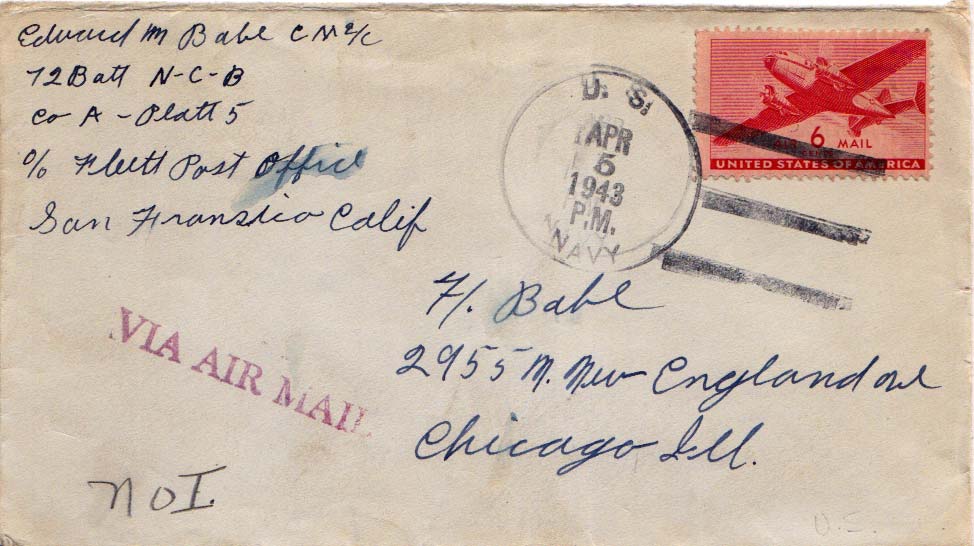 Edward M Babl CM2/c
72 Batt N-C-B
Co A - Platt 5
c/o Fleett Post Office
San Franstico Calif
U. S.
APR
5
1943
P.M.
NAVY
AIR 6 MAIL
UNITED STATES OF AMERICA
F. Babl
2955 N. New England ave
Chicago Ill.
VIA AIR MAIL
NOI.